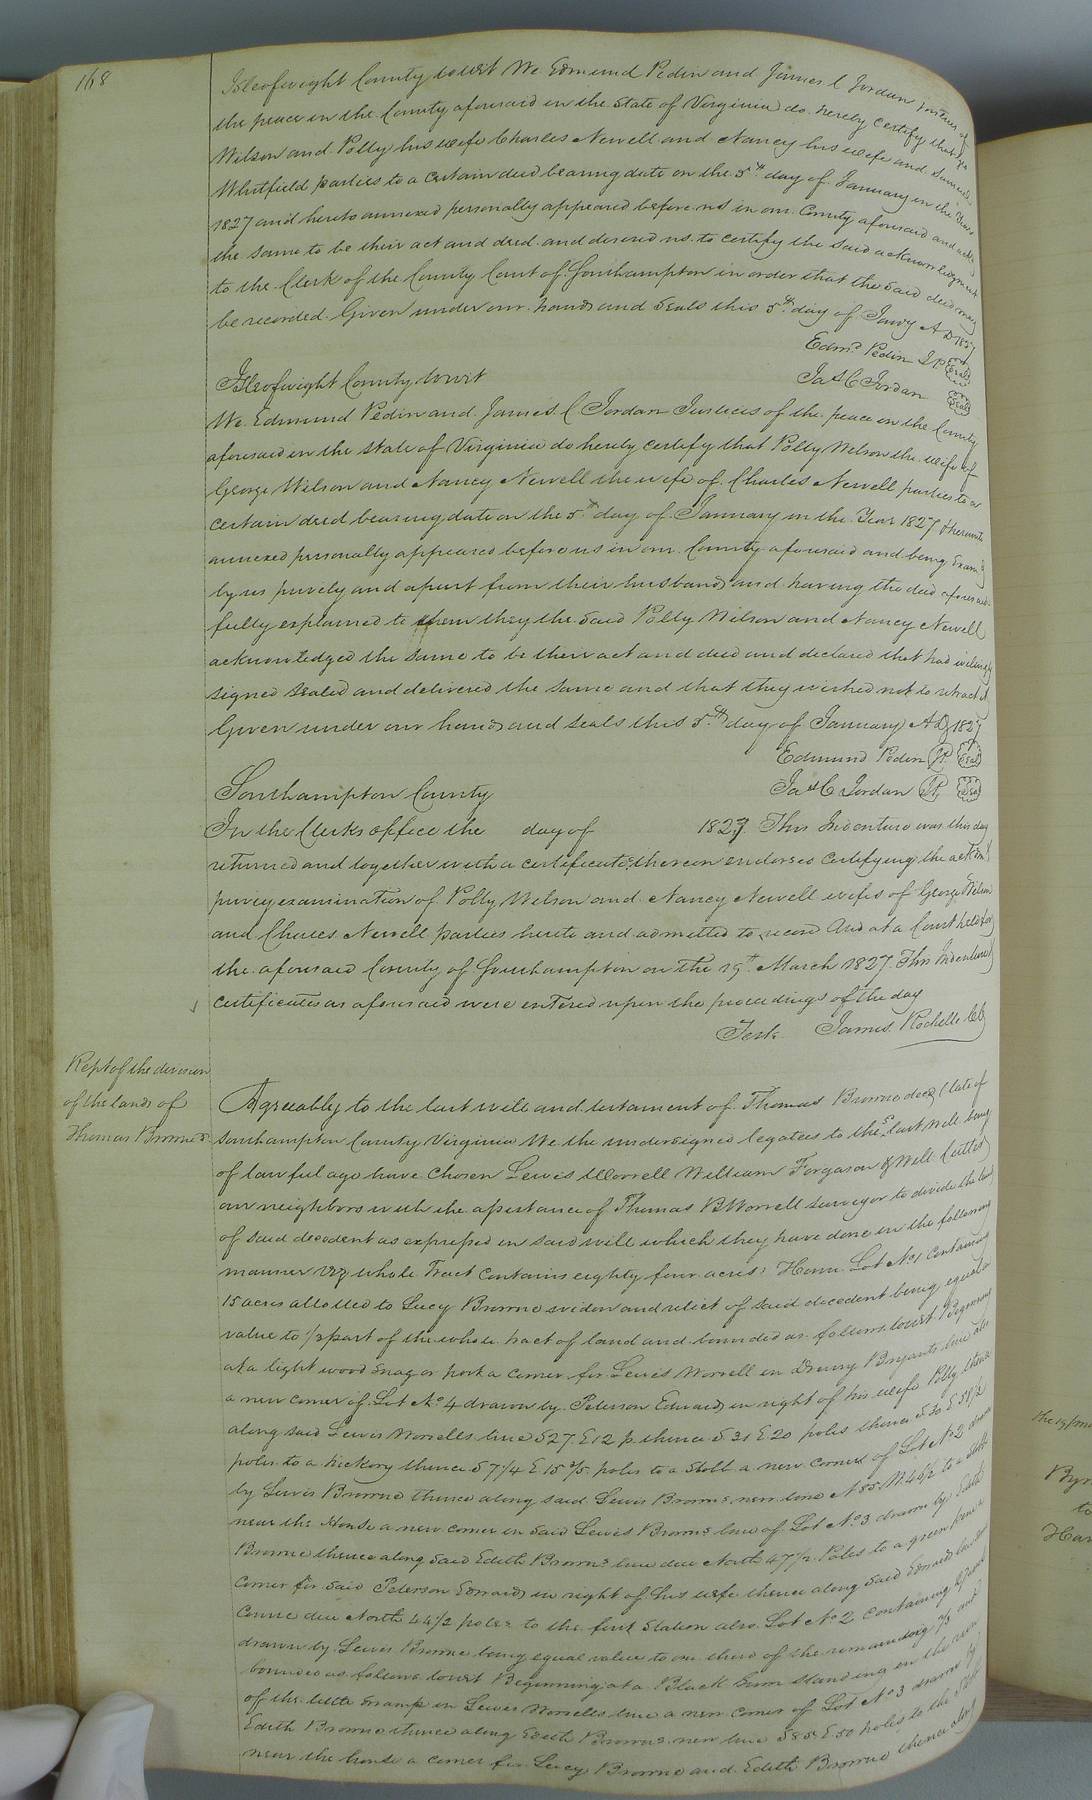 168
Isleofwight County towit We Edmund Pedin and James C Jordan Justices of
the peace in the County aforesaid in the State of Virginia do hereby certify that
Wilson and Polly his wife Charles Newell and Nancy his wife and
Whitfield parties to a certain deed bearing date on the 5th day of January in the Year
1827 and hereto annexed personally appeared before us in our County aforesaid and
the same to be their act and deed and desired us to certify the said acknowledgment
to the Clerk of the County Court of Southampton in order that the said deed may
be recorded. Given under our hands and Seals this 5th day of Jany A D 1827
Edmd Pedin J P Seal
Jas C Jordan Seal
Isleofwight County towit
We Edmund Pedin and James C Jordan Justices of the peace in the County
aforesaid in the State of Virginia do hereby certify that Polly Wilson the wife of
George Wilson and Nancy Newell the wife of Charles Newell parties to a
certain deed bearing date on the 5th day of January in the Year 1827 & hereunto
annexed personally appeared before us in our County aforesaid and being Examd
by us privily and apart from their husbands and having the deed aforesaid
fully explained to them they the Said Polly Wilson and Nancy Newell
acknowledged the same to be their act and deed and declared that had willingly
signed Sealed and delivered the same and that they wished not to retract it
Given under our hands and seals this 5th day of January A D, 1827
Edmund Pedin JP. Seal
Jas C Jordan JP, Seal
Southampton County
In the Clerks office the day of 1827. This Indenture was this day
returned and together with a certificate thereon endorsed certifying the
privy examination of Polly Wilson and Nancy Newell wifes of George Wilson
and Charles Newell parties hereto and admitted to record And at a Court held for
the aforesaid County of Southampton on the 19th March 1827. This Indenture
certificates as aforesaid were entered upon the proceedings of the day
Teste James Rochelle Clk
Rept of the division
of the lands of
Thomas Browne
Agreeably to the last will and testament of Thomas Browne decd (late of
Southampton County Virginia We the undersigned legatees to the sd last will being
of lawful age have chosen Lewis Worrell William Forgason & Will
our neighbors with the assistance of Thomas B Worrell surveyor to divide the land
of said decedent as expressed in said will which they have done in the following
manner viz whole Tract contains eighty four acres: Lot No 1 containing
15 acres allotted to Lucy Browne widow and relict of said decedent being equal in
value to 1/3 part of the whole tract of land and bounded as follows towit Beginning
at a light wood snag or post a corner for Lewis Worrell in Drewry Bryants line also
a new corner of Lot No 4 drawn by Peterson Edwards in right of his wife Polly thence
along said Lewis Worrells line S 27. E 12 p. thence S 31 E 20 poles thence
poles to a hickory thence S 7 1/4 E 15 3/5 poles to a Stob a new corner of Lot No 2 drawn
by Lewis Browne thence along said Lewis Browns new line N 85. W. 46 1/2 to a stob
near the House a new corner in said Lewis Browns line of Lot No 3 drawn by Edith
Browne thence along Said Edith Browns line due North 47 1/2 Poles to a green pine a
Corner for Said Peterson Edwards in right of his wife thence along said Edwards
due North 44 1/2 poles to the first Station also Lot No 2 containing
drawn by Lewis Browne being equal value to one third of the remaining 2/3 and
bounded as follows towit Beginning at a Black Gum Standing in the run
of the little Swamp in Lewis Worrells line a new corner of Lot No 3 drawn by
Edith Browne thence along Edith Browns new line S 85. E 50 poles to the Stob
near the house a corner for Lucy Browne and Edith Browne thence along
Byr
to
Har